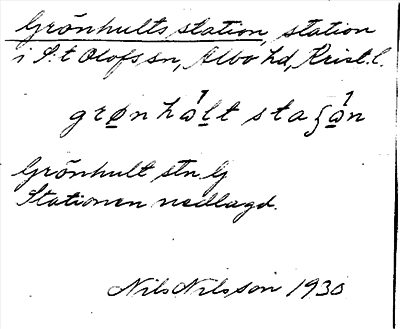 Grönhults station, station
i S:t Olofs sn, Albo hd, Krist. l.
grønhåʹlt staʃåʹn
Grönhult stn G
Stationen nedlagd.
Nils Nilsson 1930